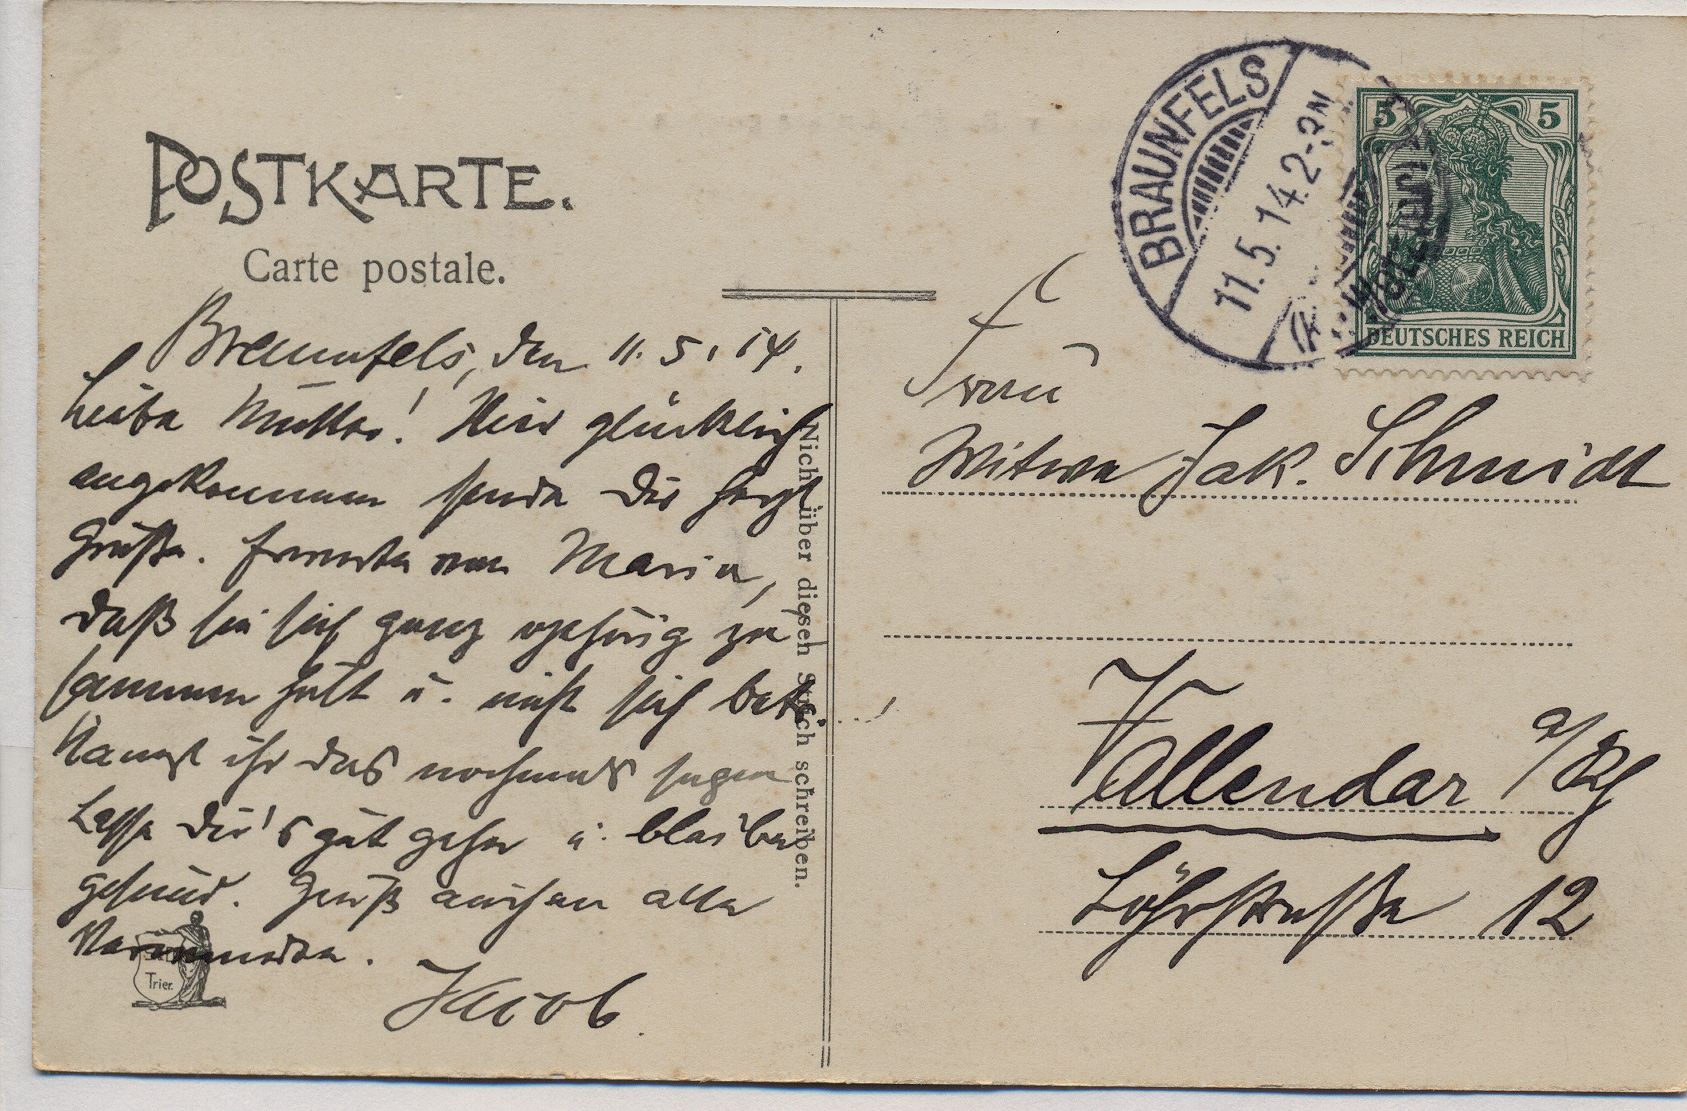 POSTKARTE.
Carte postale.
Braunfels, den 11. 5. 14.
Liebe Mutter! Hier glücklich
angekommen sende Dir herzl.
Grüße. Erwarte von Maria,
daß sie sich ganz gehörig zu
sammen hält u. nicht sich
Kannst ihr das nochmals sagen
Lasse Dir's gut gehen u. bleibe
gesund. Gruß auch an alle
Verwandten.
Jacob.
Trier.
Nicht über diesen Strich schreiben.
BRAUNFELS
11.5.14.2-3N
5 5
DEUTSCHES REICH
Frau
Witwe Jak. Schmidt
Vallendar a/Rh
Löhrstraße 12